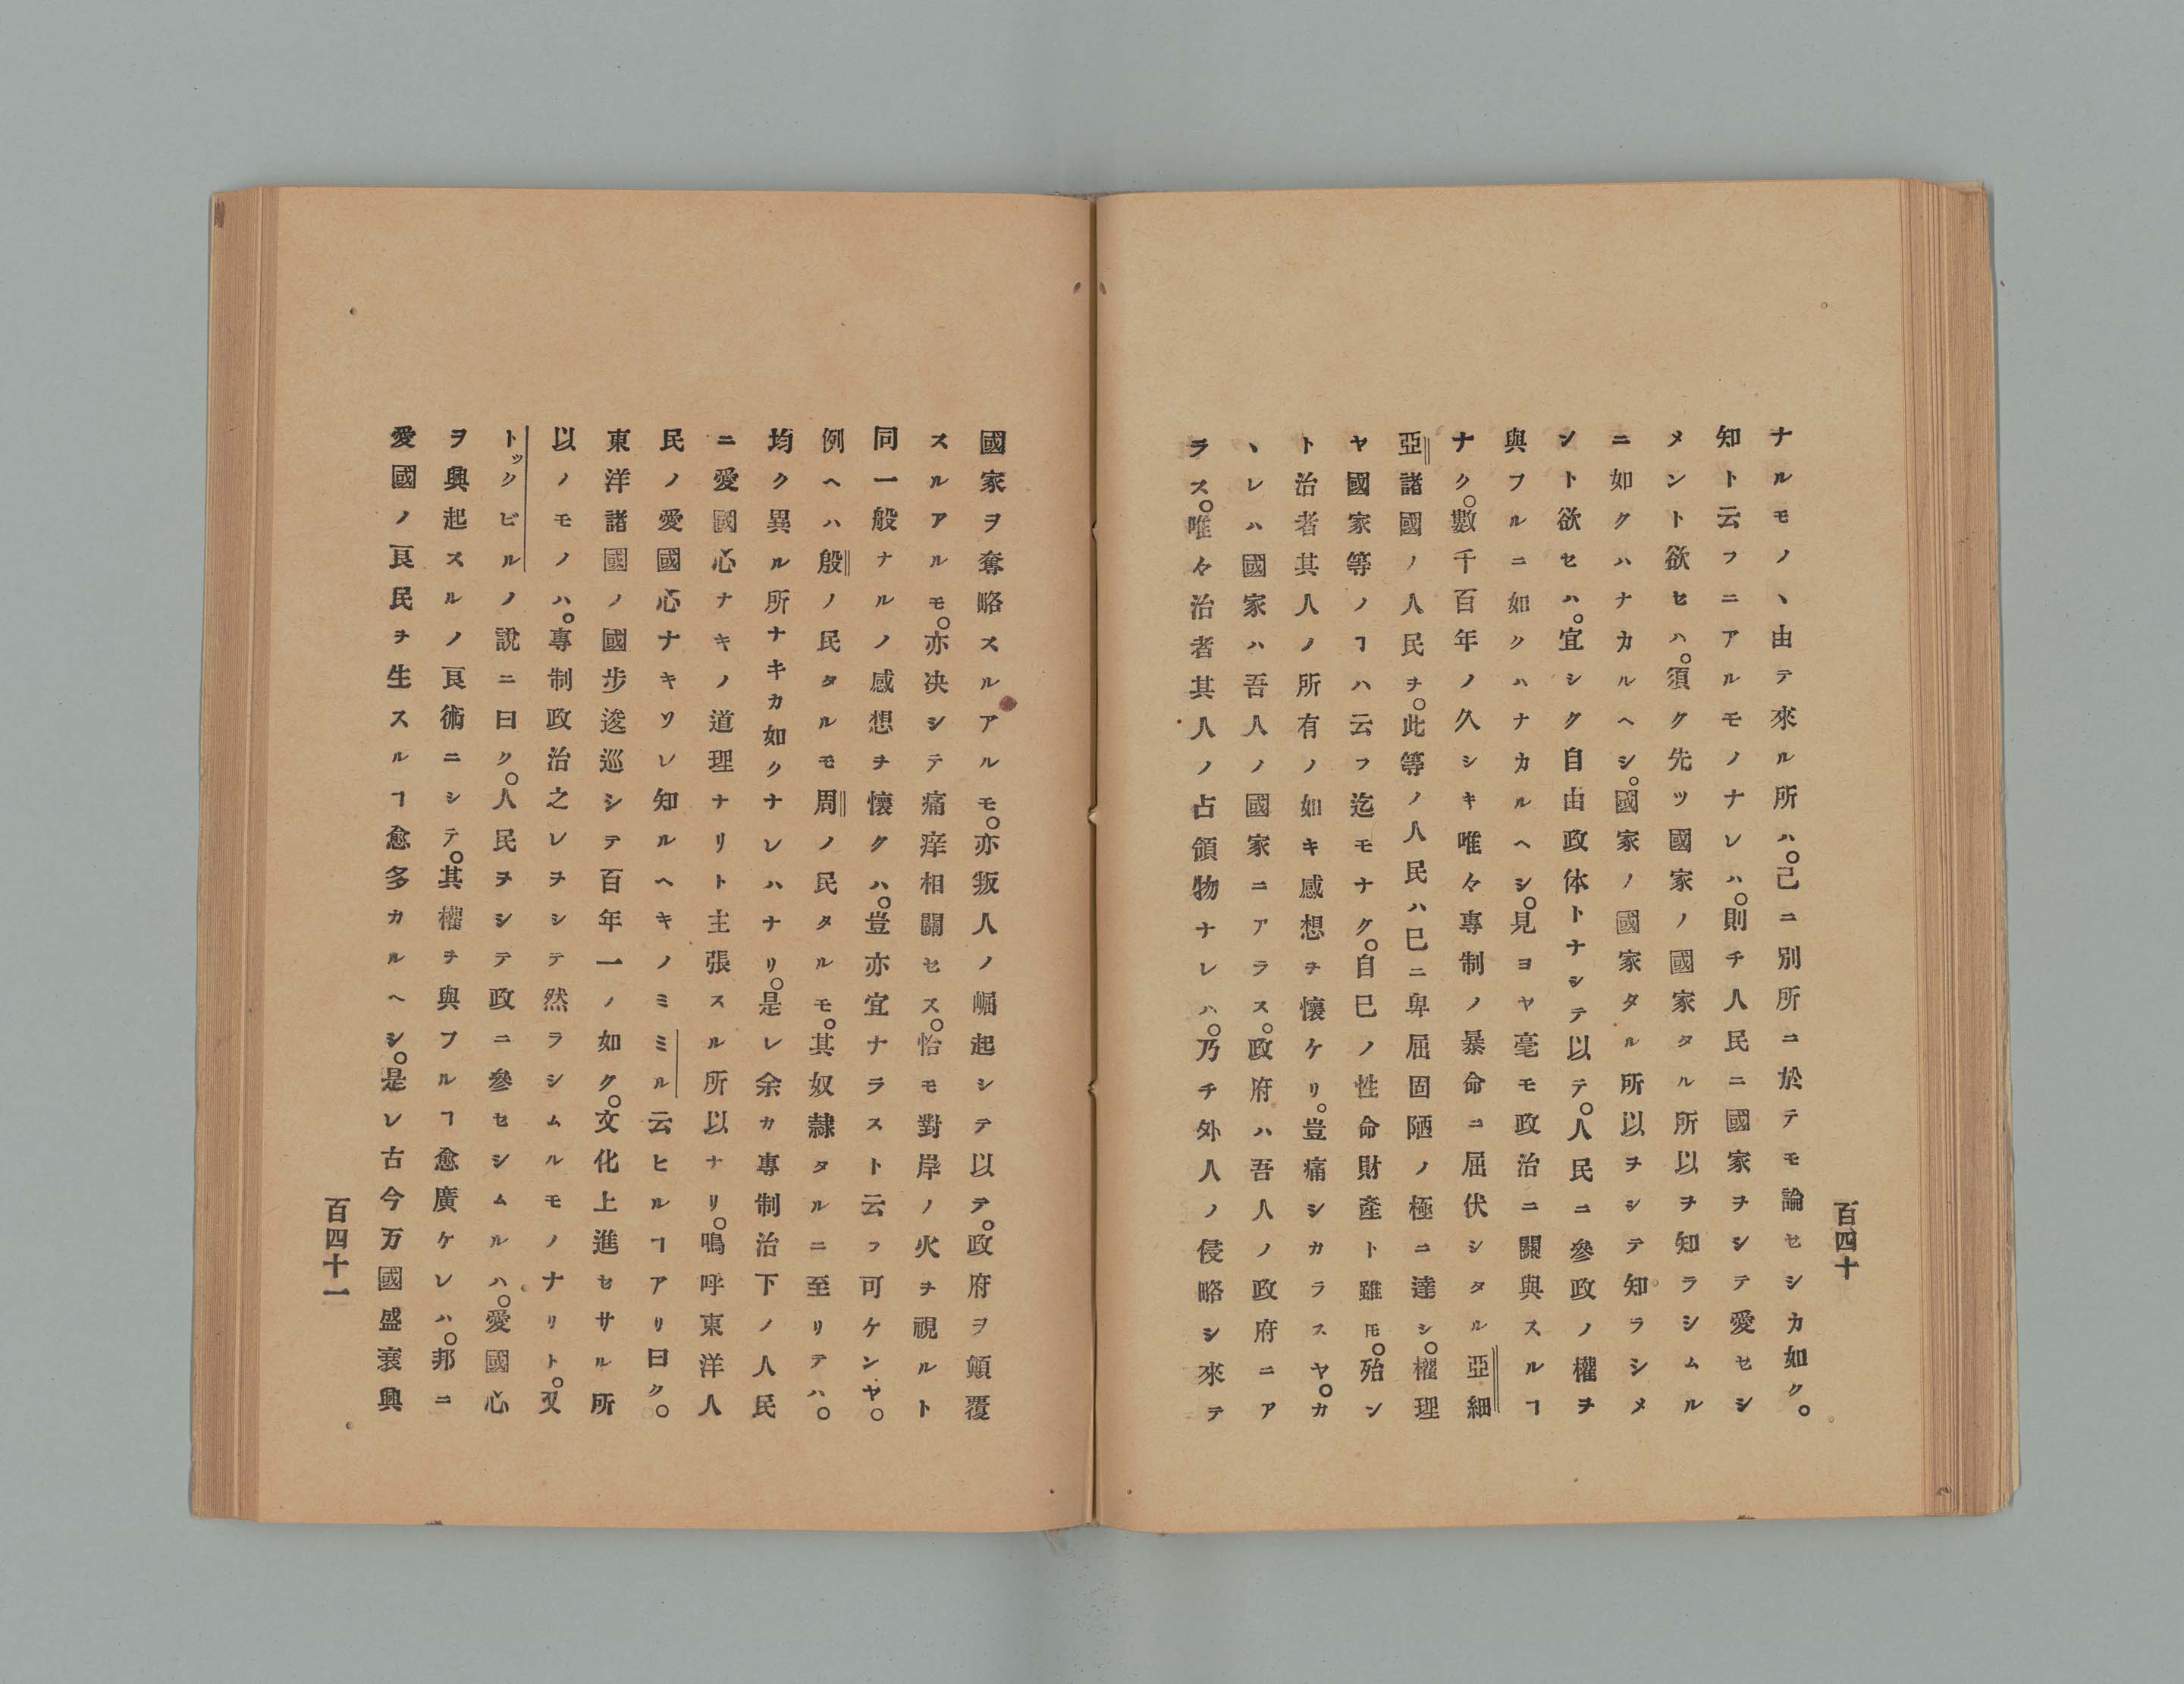 百四十
ナルモノヽ由テ來ル所ハ。己ニ別所ニ於テモ論セシカ如ク。
知ト云フニアルモノナレハ。則チ人民ニ國家ヲシテ愛セシ
メント欲セハ。須ク先ツ國家ノ國家タル所以ヲ知ラシムル
ニ如クハナカルヘシ。國家ノ國家タル所以ヲシテ知ラシメ
ント欲セハ。宜シク自由政体トナシテ以テ。人民ニ參政ノ權ヲ
與フルニ如クハナカルヘシ。見ヨヤ毫モ政治ニ關與スルヿ
ナク。數千百年ノ久シキ唯々專制ノ暴命ニ屈伏シタル亞細
亞諸國ノ人民ヲ。此等ノ人民ハ已ニ卑屈固陋ノ極ニ達シ。權理
ヤ國家等ノヿハ云フ迄モナク。自己ノ性命財產ト雖𪜈。殆ン
ト治者其人ノ所有ノ如キ感想ヲ懷ケリ。豈痛シカラスヤ。カ
ヽレハ國家ハ吾人ノ國家ニアラス。政府ハ吾人ノ政府ニア
ラス。唯々治者其人ノ占領物ナレハ。乃チ外人ノ侵略シ來テ
國家ヲ奪略スルアルモ。亦叛人ノ崛起シテ以テ。政府ヲ顛覆
スルアルモ。亦决シテ痛痒相關セス。恰モ對岸ノ火ヲ視ルト
同一般ナルノ感想ヲ懷クハ。豈亦宜ナラスト云フ可ケンヤ。
例ヘハ殷ノ民タルモ周ノ民タルモ。其奴隷タルニ至リテハ。
均ク異ル所ナキカ如クナレハナリ。是レ余カ專制治下ノ人民
ニ愛國心ナキノ道理ナリト主張スル所以ナリ。嗚呼東洋人
民ノ愛國心ナキソレ知ルヘキノミミル云ヒルヿアリ曰ク。
東洋諸國ノ國步逡巡シテ百年一ノ如ク。文化上進セサル所
以ノモノハ。專制政治之レヲシテ然ラシムルモノナリト。又
トックビルノ說ニ曰ク。人民ヲシテ政ニ參セシムルハ。愛國心
ヲ興起スルノ良術ニシテ。其權ヲ與フルヿ愈廣ケレハ。邦ニ
愛國ノ良民ヲ生スルヿ愈多カルヘシ。是レ古今万國盛衰興
百四十一